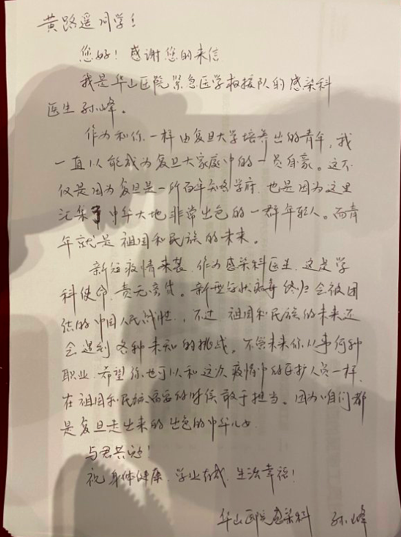 黄路遥同学:
您好! 感谢您的来信
我是华山医院紧急医学救援队的感染科
医生孙峰。
作为和你一样由复旦大学培养出的青年, 我
一直以能成为复旦大家庭中的一员自豪。这不
仅是因为复旦是一所百年学府, 也是因为这里
汇集了中华大地非常出色的一群年轻人。而青
年就是祖国和民族的未来。
新冠疫情来袭, 作为感染科医生, 这是学
科使命, 责无旁贷。新型冠状病毒终归会被团
结的中国人民战胜, 不过, 祖国和民族的未来还
会遇到各种未知的挑战。不管未来你从事何种
职业, 希望你也可以和这次疫情中的医护人员一样,
在祖国和民族需要的时候敢于担当。因为咱们都
是复旦走出来的出色的中华儿女
与君共勉!
祝 身体健康, 学业有成 生活幸福!
华山医院感染科 孙峰